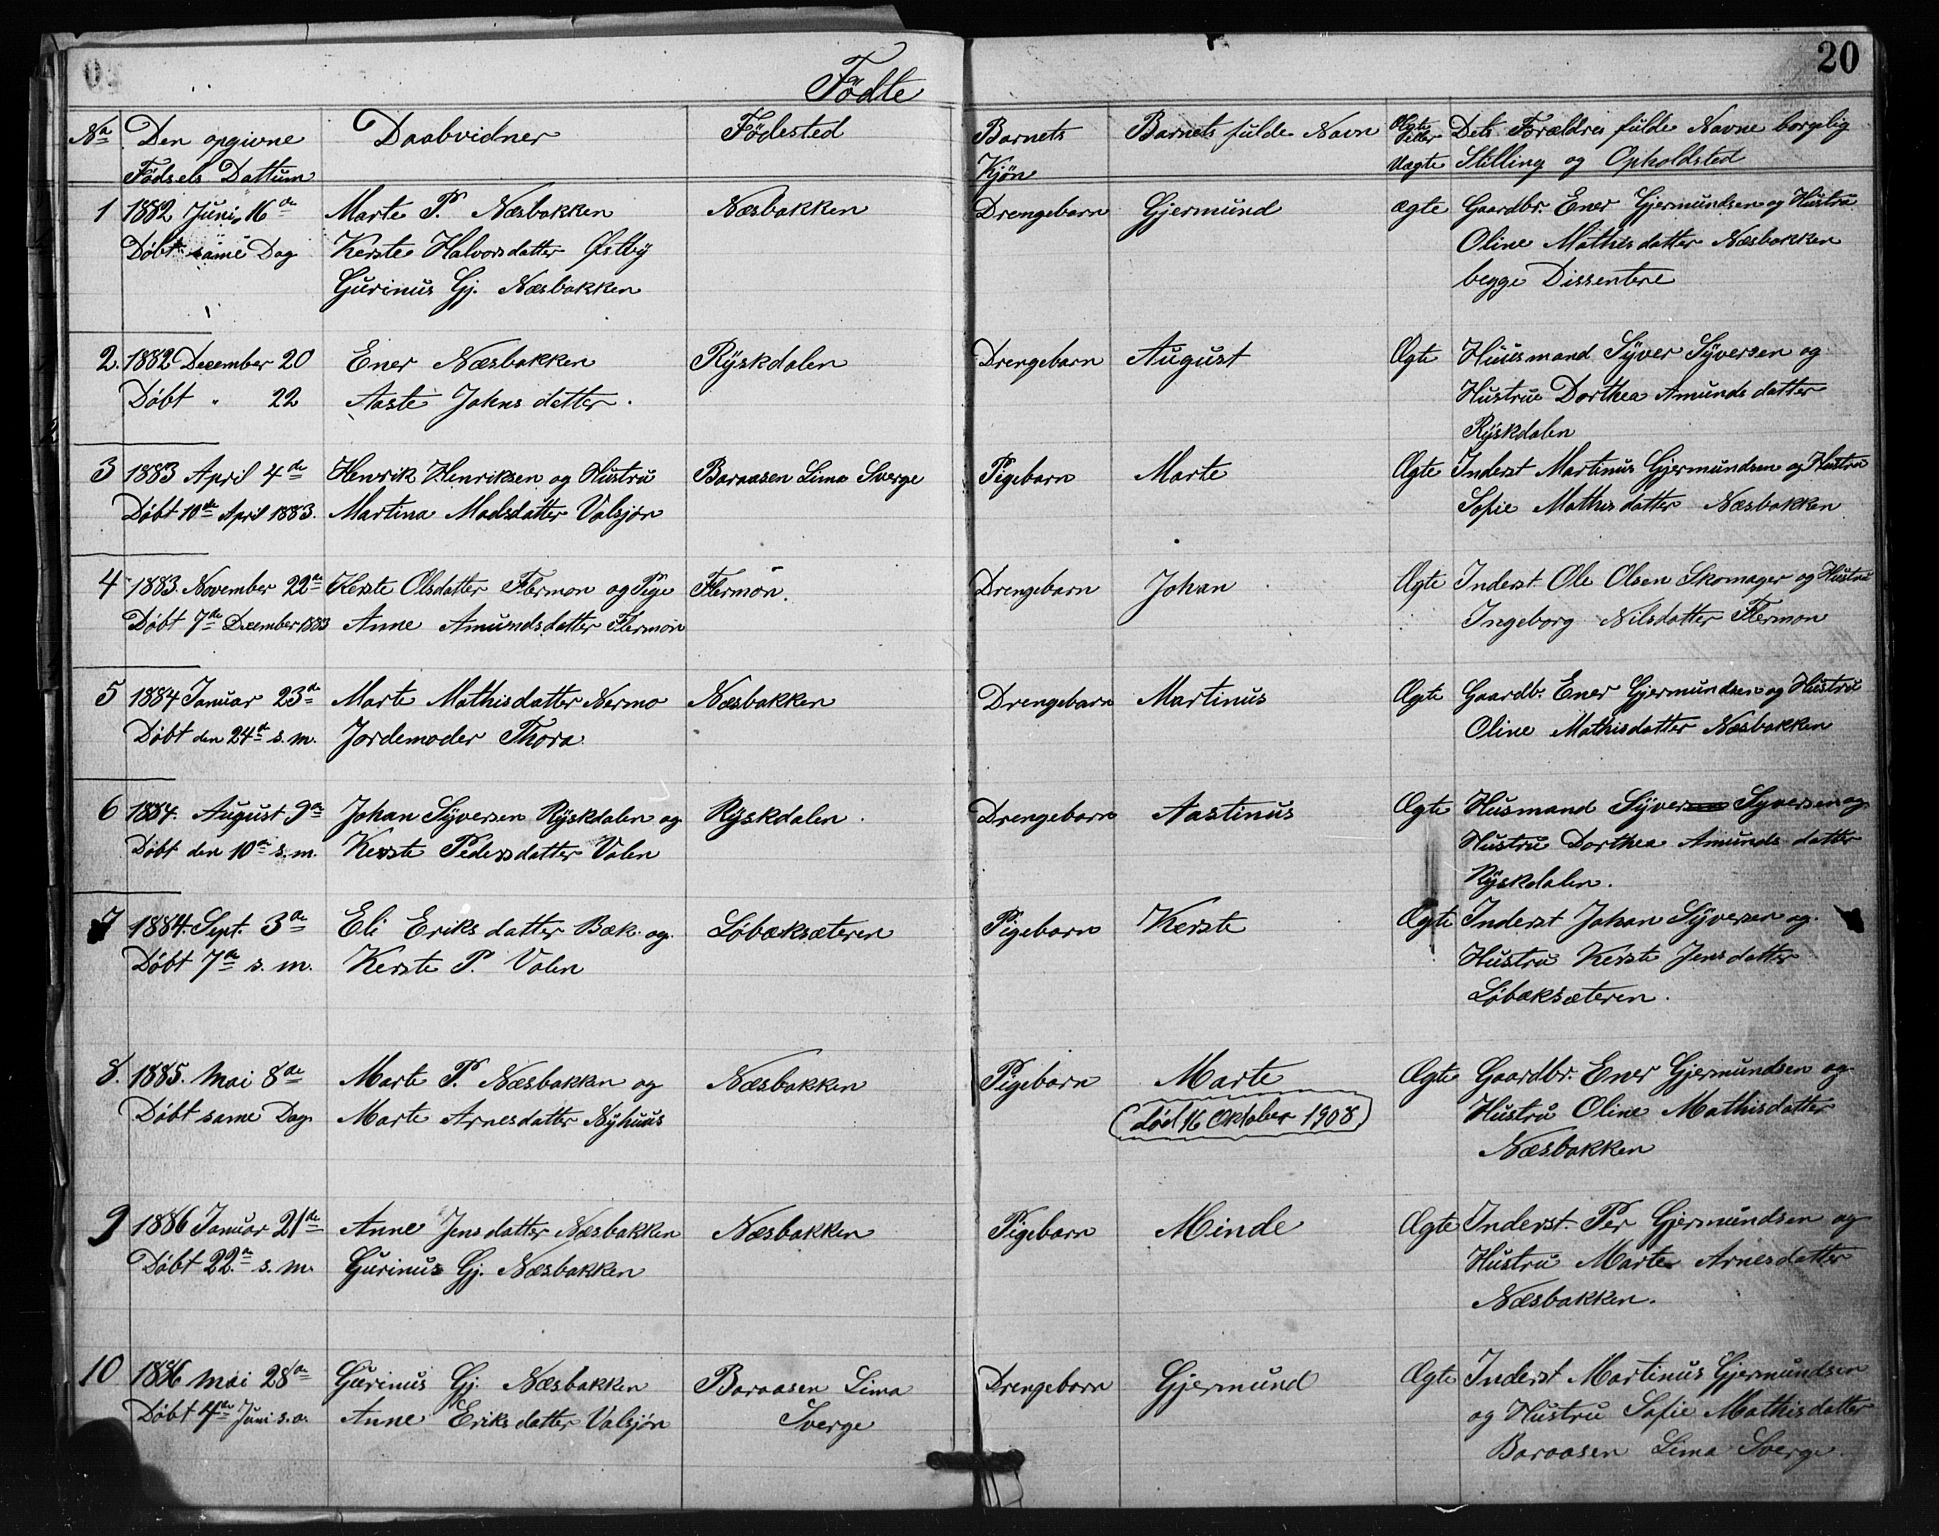 20
Födte
No Den opgivne Fødsels Dattum Daabvidner Födested Barnets Kjön Barnets fulde Navn Ægte eller Uægte Dets Forældres fulde Navne borgelig Stilling og Opholdsted
1 1882 Juni 16de Marte P. Næsbakken Næsbakken Drengebarn Gjermund ægte Gaardbr. Ener Gjermundsen og Hustru
Døbt same Dag Kerste Halvorsdatter Østby Oline Mathisdatter Næsbakken
Gurinus Gj. Næsbakken begge Dissentere
2. 1882 December 20 Ener Næsbakken Ryskdalen Drengebarn August Ægte Huusmand Syver Syversen og
Døbt " 22 Aaste Johnsdatter. Hustrue Dorthea Amundsdatter
Ryskdalen
3 1883 April 4de Henrik Henriksen og Hustru Baraasen Lima Sverge Pigebarn Marte Ægte Inderst Martinus Gjermundsen og Hustru
Døbt 10de April 1883. Martina Madsdatter Valsjön Sofie Mathisdatter Næsbakken
4 1883. November 22de Kerste Olsdatter Flermon og Pige Flermon. Drengebarn Johan Ægte Inderst Ole Olsen Skomager og Hustru
Døbt 7de December 1883 Anne Amundsdatter Flermon Ingeborg Nilsdatter Flermon
5 1884 Januar 23de Marte Mathisdatter Nermo Næsbakken Drengebarn Martinus Ægte Gaardb. Ener Gjermundsen og Hustru
Døbt den 24de s. m. Jordemoder Thora Oline Mathisdatter Næsbakken
6 1884. August 9de Johan Syversen Ryskdalen og Ryskdalen. Drengebarn Aastinus Ægte Husmand Syversen Syversen og
Døbt den 10de s. m. Kerste Pedersdatter Valen Hustru Dorthea Amundsdatter
Ryskdalen.
7 1884. Sept. 3de Eli Eriksdatter Bæk og Løbæksæteren Pigebarn Kerste Ægte Inderst Johan Syversen og
Døbt 7de s. m. Kerste P. Valen Hustru Kerste Jensdatter
Løbæksæteren.
8. 1885. Mai 8de Marte P. Næsbakken og Næsbakken Pigebarn Marte Ægte Gaardbr. Ener Gjermundsen og
Døbt same Dag. Marte Arnesdatter Nyhuus (død 16 Oktober 1908) Hustru Oline Mathisdatter
Næsbakken
9 1886 Januar 21de Anne Jensdatter Næsbakken Næsbakken Pigebarn Minde Ægte Inderst Per Gjermundsen og
Døbt 22de s. m. Gurinus Gj. Næsbakken Hustru Marte Arnesdatter
Næsbakken.
10 1886 Mai 28de Gurinus Gj. Næsbakken Baraasen Lima Drengebarn Gjermund Ægte Inderst Martinus Gjermundsen
Døbt 4de Juni s. a. Anne Eriksdatter Valsjön Sverge og Hustru Sofie Mathisdatter
Baraasen Lima Sverge.